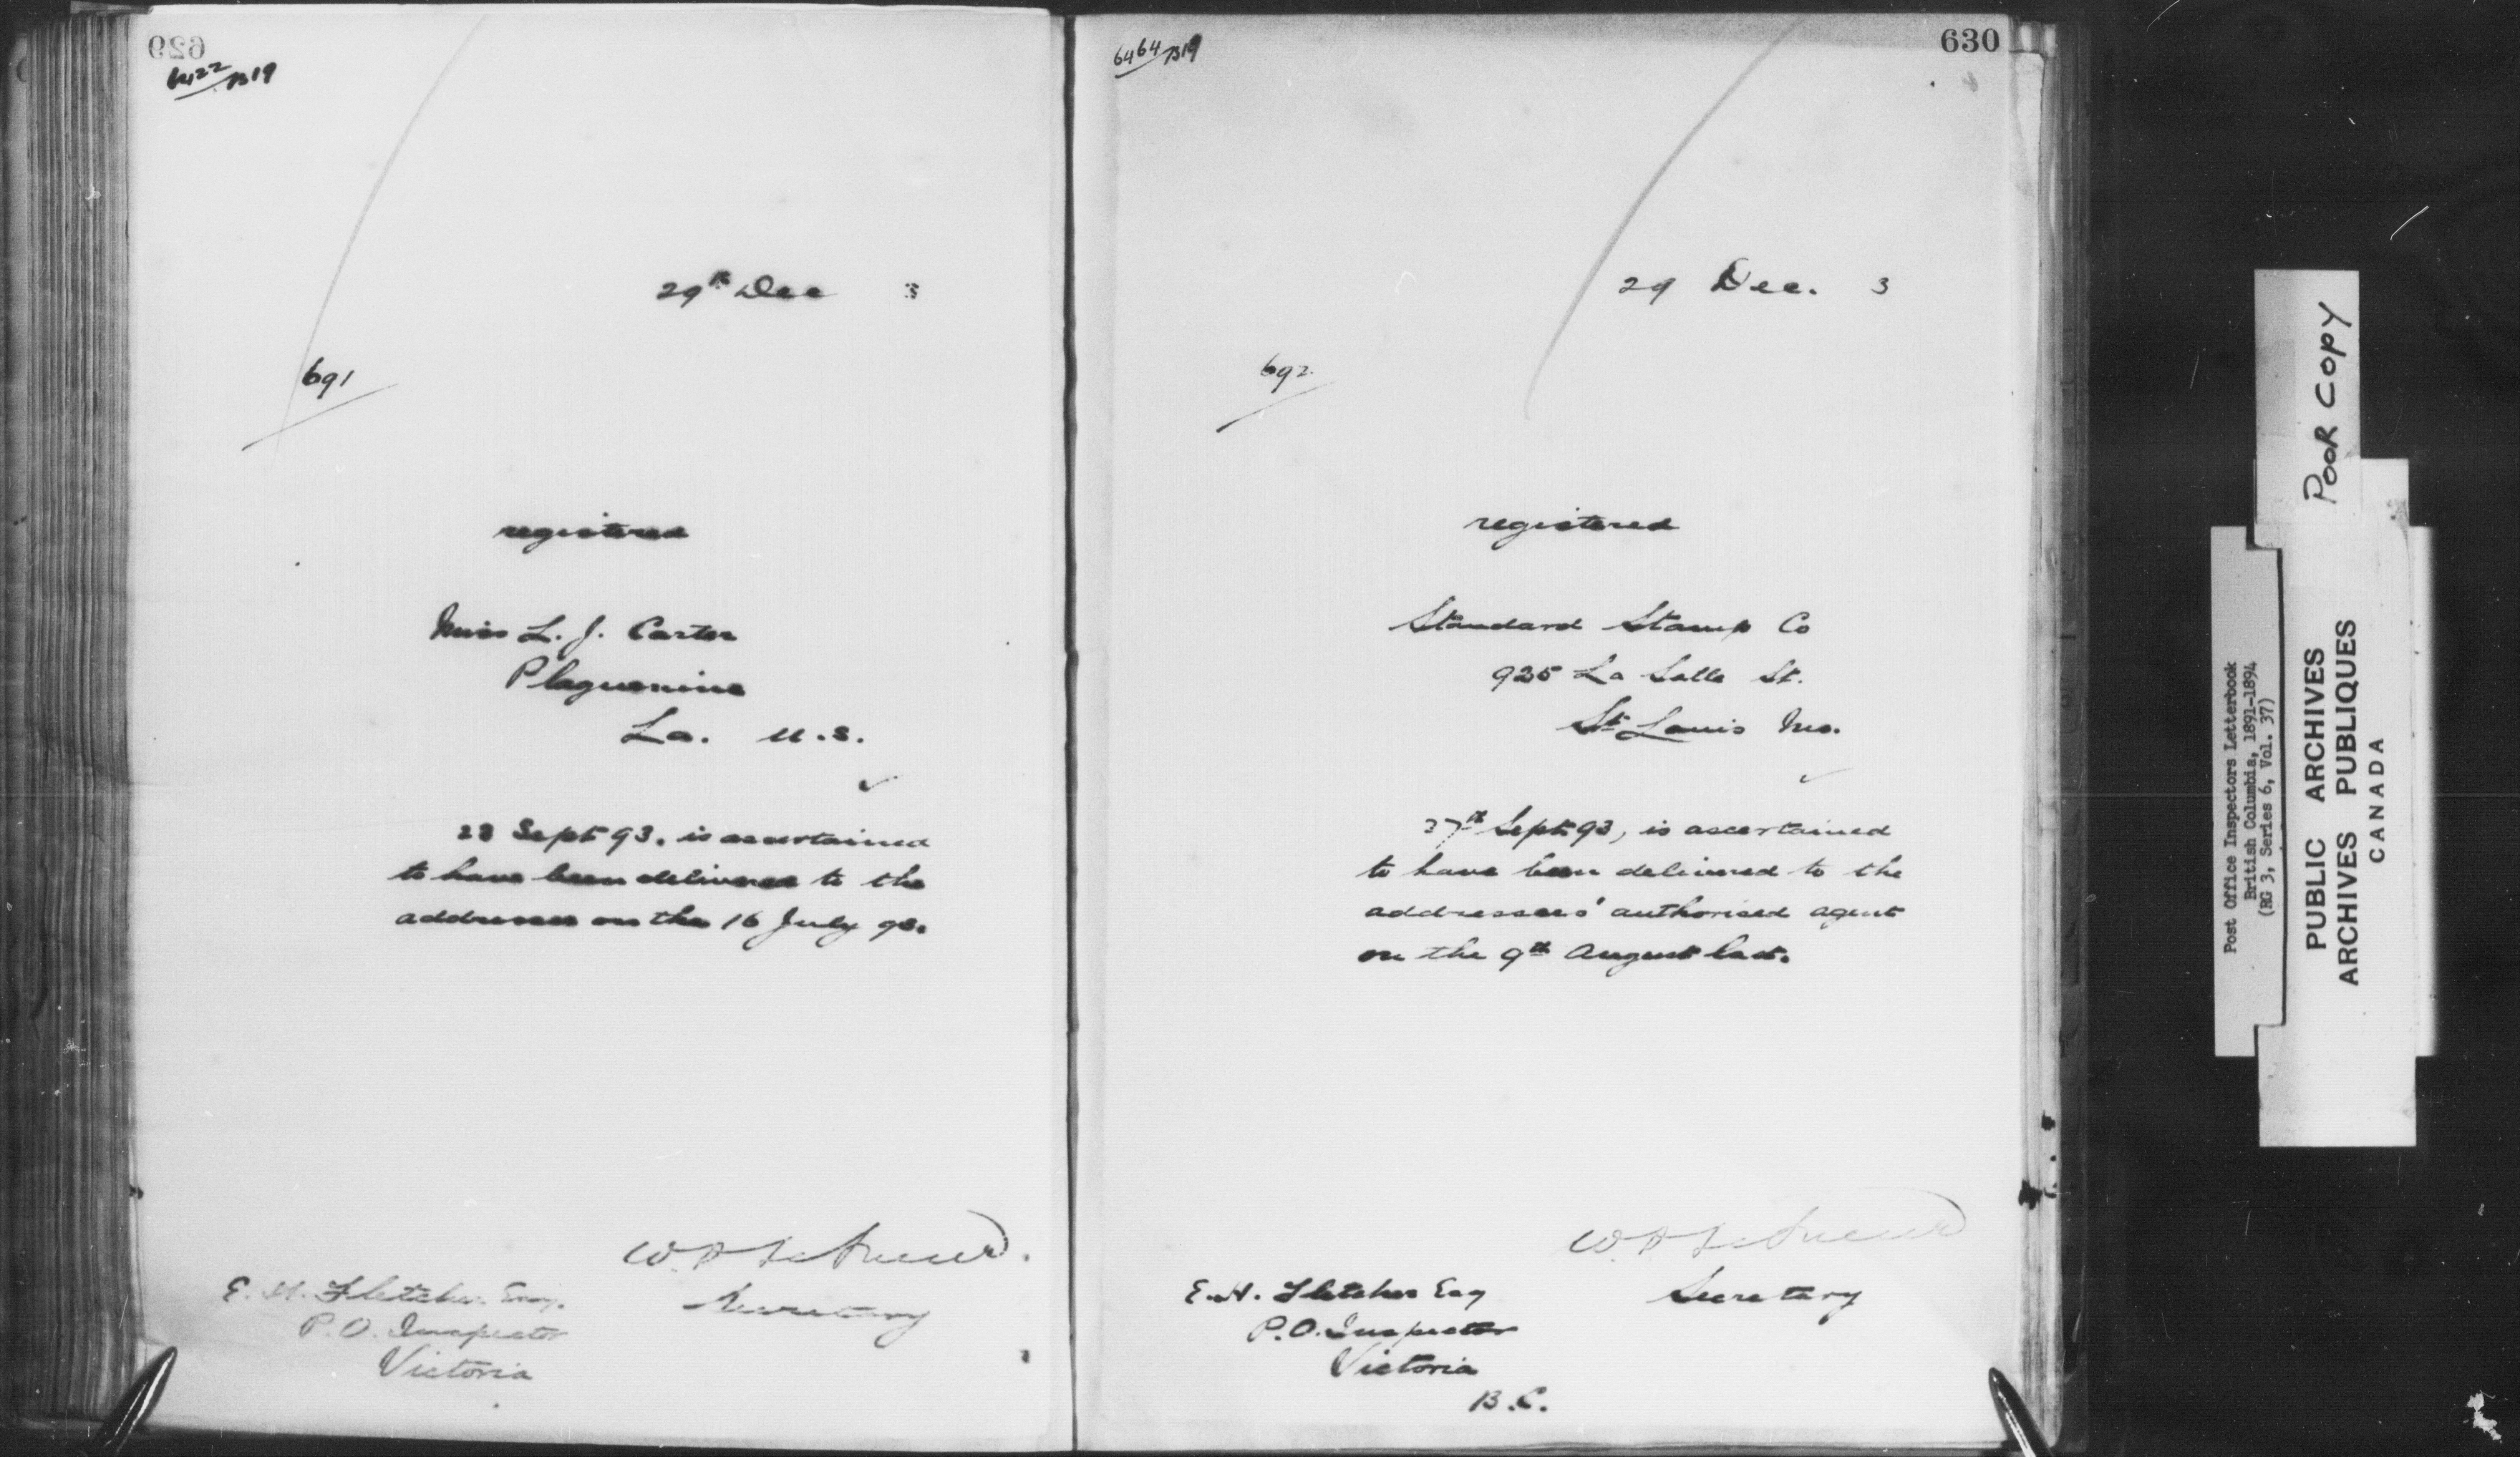 629
6422/B19
29th Dec 3
691
registered
Miss L. J. Carter
Plaquemine
La. U.S.
23 Sept 93. is ascertained
to have been delivered to the
addressee on the 16 July 93.
Secretary
E. H. Fletcher Esq.
P.O. Inspector
Victoria
6464/B19
630
29 Dec. 3
692
registered
Standard Stamp Co
925 La Salle St.
St Louis Mo.
27th Sept 93, is ascertained
to have been delivered to the
addressees' authorised agent
on the 9th August last.
Secretary
E. H. Fletcher Esq
P.O. Inspector
Victoria
B.C.
POOR COPY
Post Office Inspectors Letterbook
British Columbia, 1891-1894
(RG 3, Series 6, Vol. 37)
PUBLIC ARCHIVES
ARCHIVES PUBLIQUES
CANADA